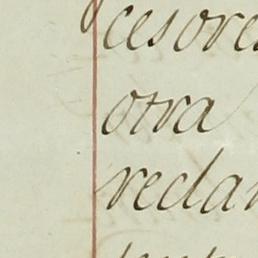 cesore
otra
reclar